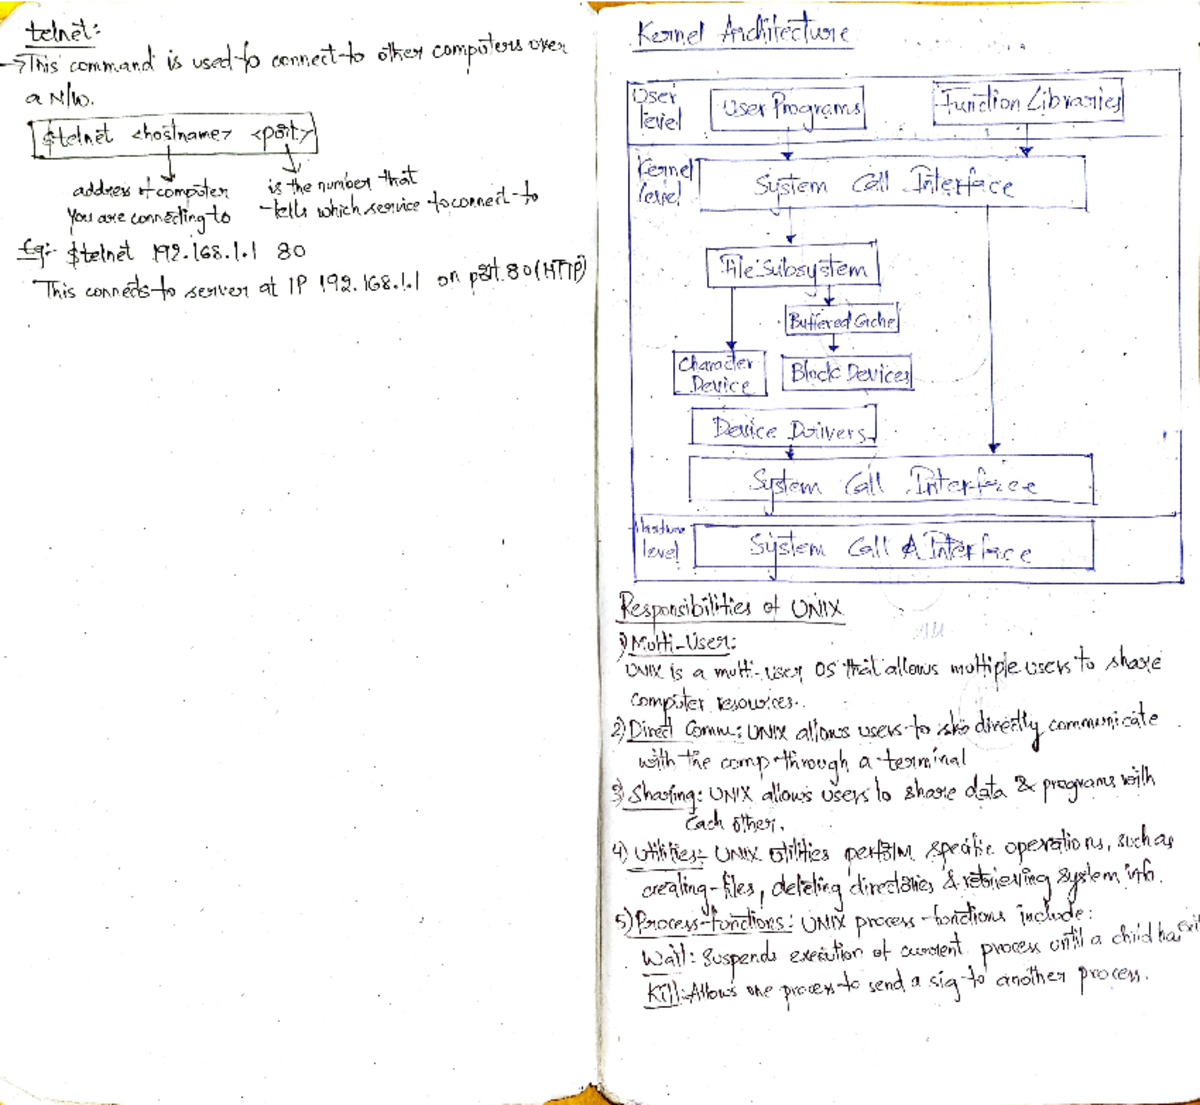 telnet:
→This command is used to connect to other computers over
a N/w.
$telnet <hostname> <port>
address of computer
you are connecting to
is the number that
tells which service to connect to
Eg:- $telnet 192.168.1.1 80
This connects to server at IP 192.168.1.1 on port 80 (HTTP)
Kernel Architecture
User
level
User Programs
Function Libraries
Kernel
level
System Call Interface
File Subsystem
Buffered Cache
Character
Device
Block Devices
Device Drivers
System Call Interface
level
System Call Interface
Responsibilities of UNIX
1) Multi-User:
UNIX is a multi-user OS that allows multiple users to share
computer resources.
2) Direct Comm: UNIX allows users to directly communicate
with the comp through a terminal
3) Sharing: UNIX allows users to share data & programs with
each other.
4) Utilities: UNIX utilities perform specific operations, such as
creating files, deleting directories & retrieving system info.
5) Process functions: UNIX process functions include:
Wait: Suspends execution of current process until a child has exit
Kill: Allows one process to send a sig to another process.